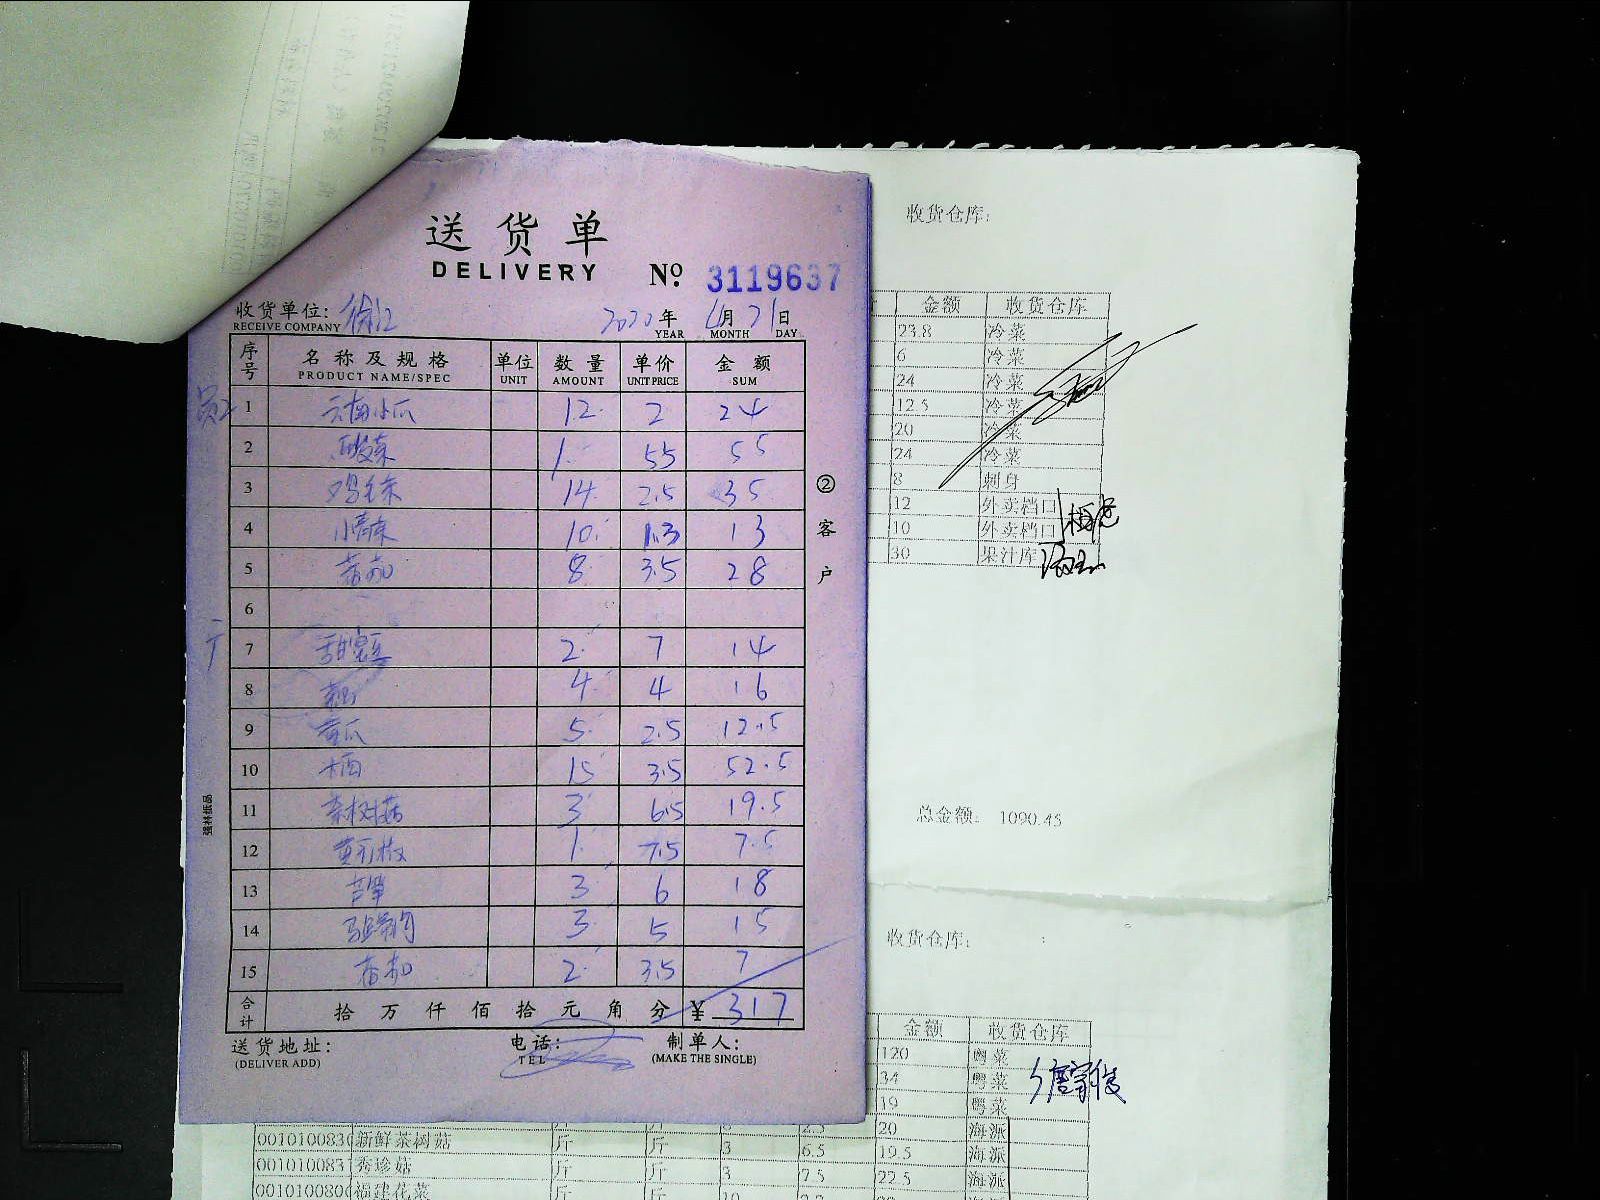 送货单
DELIVERY
№ 3119637
收货单位: 徐汇 2020年 月21日
RECEIVE COMPANY YEAR MONTH DAY
序号 名称及规格 单位 数量 单价 金额
PRODUCT NAME/SPEC UNIT AMOUNT UNIT PRICE SUM
员工
1 云南小瓜 12 2 24
2 酸菜 1 55 55
3 鸡毛菜 14 2.5 35
4 小青菜 10 1.3 13
5 番茄 8 3.5 28
6
7 甜蜜豆 2 7 14
8 4 4 16
9 黄瓜 5 2.5 12.5
10 15 3.5 52.5
11 茶树菇 3 6.5 19.5
12 黄彩椒 1 7.5 7.5
13 3 6 18
14 3 5 15
15 2 3.5 7
合计 拾万仟佰拾元角分 ¥ 317
送货地址: 电话: 制单人:
(DELIVER ADD) TEL (MAKE THE SINGLE)
②客户
强林纸品
收货仓库:
金额 收货仓库
23.8 冷菜
6 冷菜
24 冷菜
12.5 冷菜
20 冷菜
24 冷菜
8 刺身
12 外卖档口
10 外卖档口
30 果汁库
总金额: 1090.45
收货仓库:
金额 收货仓库
120 粤菜
34 粤菜
19 粤菜
2.5 20 海派
新鲜茶树菇 斤 斤 3 6.5 19.5 海派
秀珍菇 斤 斤 3 7.5 22.5 海派
福建花菜 斤 斤 10